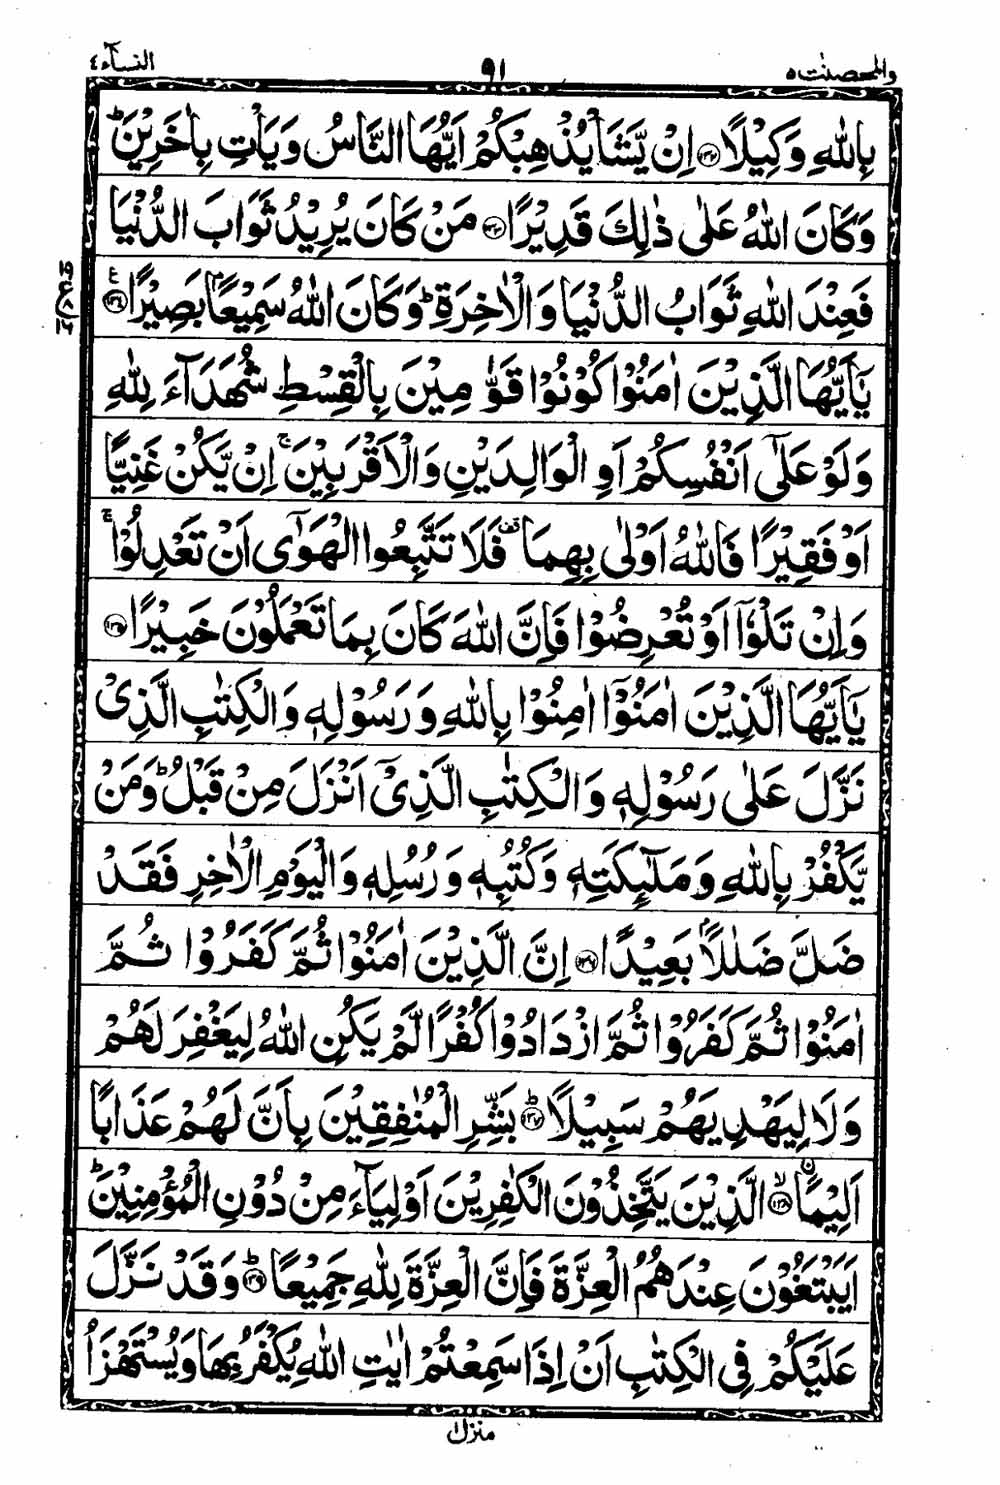 والمحصنٰت ٥
٩١
النسآء ٤
بِاللّٰهِ وَكِيْلًا ﴿١٣٢﴾ اِنْ يَّشَاْ يُذْهِبْكُمْ اَيُّهَا النَّاسُ وَيَاْتِ بِاٰخَرِيْنَ ؕ
وَكَانَ اللّٰهُ عَلٰى ذٰلِكَ قَدِيْرًا ﴿١٣٣﴾ مَنْ كَانَ يُرِيْدُ ثَوَابَ الدُّنْيَا
فَعِنْدَ اللّٰهِ ثَوَابُ الدُّنْيَا وَالْاٰخِرَةِ ؕ وَكَانَ اللّٰهُ سَمِيْعًۢا بَصِيْرًا ﴿١٣٤﴾ ع
يٰۤاَيُّهَا الَّذِيْنَ اٰمَنُوْا كُوْنُوْا قَوّٰمِيْنَ بِالْقِسْطِ شُهَدَآءَ لِلّٰهِ
وَلَوْ عَلٰٓى اَنْفُسِكُمْ اَوِ الْوَالِدَيْنِ وَالْاَقْرَبِيْنَ ۚ اِنْ يَّكُنْ غَنِيًّا
اَوْ فَقِيْرًا فَاللّٰهُ اَوْلٰى بِهِمَا ۫ فَلَا تَتَّبِعُوا الْهَوٰٓى اَنْ تَعْدِلُوْا ۚ
وَاِنْ تَلْوٗۤا اَوْ تُعْرِضُوْا فَاِنَّ اللّٰهَ كَانَ بِمَا تَعْمَلُوْنَ خَبِيْرًا ﴿١٣٥﴾
يٰۤاَيُّهَا الَّذِيْنَ اٰمَنُوْۤا اٰمِنُوْا بِاللّٰهِ وَرَسُوْلِهٖ وَالْكِتٰبِ الَّذِيْ
نَزَّلَ عَلٰى رَسُوْلِهٖ وَالْكِتٰبِ الَّذِيْۤ اَنْزَلَ مِنْ قَبْلُ ؕ وَمَنْ
يَّكْفُرْ بِاللّٰهِ وَمَلٰٓئِكَتِهٖ وَكُتُبِهٖ وَرُسُلِهٖ وَالْيَوْمِ الْاٰخِرِ فَقَدْ
ضَلَّ ضَلٰلًاۢ بَعِيْدًا ﴿١٣٦﴾ اِنَّ الَّذِيْنَ اٰمَنُوْا ثُمَّ كَفَرُوْا ثُمَّ
اٰمَنُوْا ثُمَّ كَفَرُوْا ثُمَّ ازْدَادُوْا كُفْرًا لَّمْ يَكُنِ اللّٰهُ لِيَغْفِرَ لَهُمْ
وَلَا لِيَهْدِيَهُمْ سَبِيْلًا ؕ﴿١٣٧﴾ بَشِّرِ الْمُنٰفِقِيْنَ بِاَنَّ لَهُمْ عَذَابًا
اَلِيْمًا ۙ﴿١٣٨﴾ ن الَّذِيْنَ يَتَّخِذُوْنَ الْكٰفِرِيْنَ اَوْلِيَآءَ مِنْ دُوْنِ الْمُؤْمِنِيْنَ ؕ
اَيَبْتَغُوْنَ عِنْدَهُمُ الْعِزَّةَ فَاِنَّ الْعِزَّةَ لِلّٰهِ جَمِيْعًا ؕ﴿١٣٩﴾ وَقَدْ نَزَّلَ
عَلَيْكُمْ فِي الْكِتٰبِ اَنْ اِذَا سَمِعْتُمْ اٰيٰتِ اللّٰهِ يُكْفَرُ بِهَا وَيُسْتَهْزَاُ
منزل ١